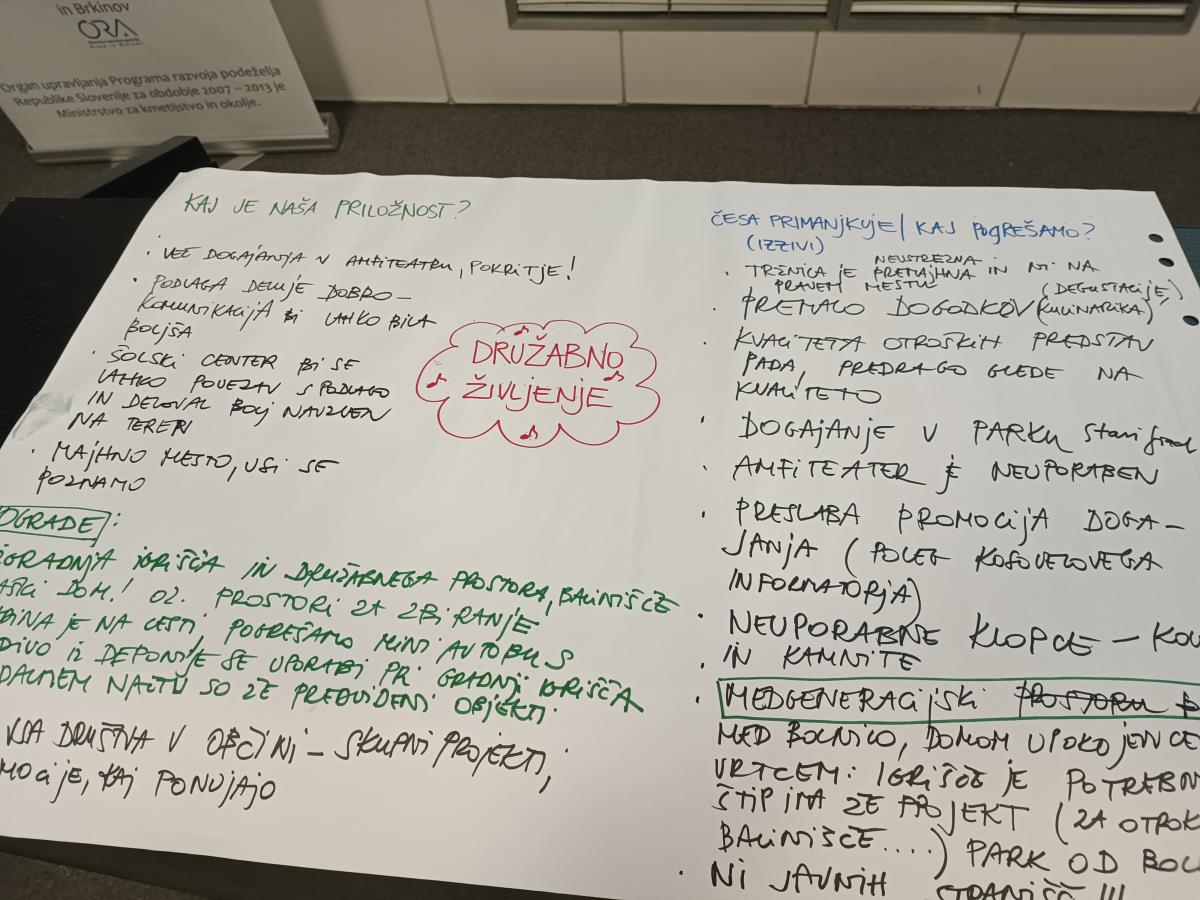 in Brkinov
ORA
Organ upravljanja Programa razvoja podeželja
Republike Slovenije za obdobje 2007 – 2013 je
Ministrstvo za kmetijstvo in okolje.
KAJ JE NAŠA PRILOŽNOST?
• VEČ DOGAJANJA V AMFITEATRU, POKRITJE!
• PODLAGA DELUJE DOBRO –
KOMUNIKACIJA BI LAHKO BILA
BOLJŠA
• ŠOLSKI CENTER BI SE
LAHKO POVEZAV S PODLAGO
IN DELOVAL BOLJ NAVZVEN
NA TEREN
• MAJHNO MESTO, VSI SE
POZNAMO
DRUŽABNO
ŽIVLJENJE
OGRADE:
IGRIŠČA IN DRUŽABNEGA PROSTORA, BALINIŠČE
DOM! OZ. PROSTORI ZA ZBIRANJE
JE NA CESTI, POGREŠAMO MINI AVTOBUS
IZ DEPONIJE SE UPORABI PRI GRADNJI IGRIŠČA
NAČTU SO ŽE PREDVIDENI OBJEKTI
VSA DRUŠTVA V OBČINI – SKUPNI PROJEKTI,
KAJ PONUJAJO
ČESA PRIMANJKUJE / KAJ POGREŠAMO?
(IZZIVI)
NEUSTREZNA
• TRŽNICA JE PREMAJHNA IN NI NA
PRAVEM MESTU
(DEGUSTACIJE,
• PREMALO DOGODKOV KULINARIKA)
• KVALITETA OTROŠKIH PREDSTAV
PADA, PREDRAGO GLEDE NA
KVALITETO
• DOGAJANJE V PARKU Stari grad
• AMFITEATER JE NEUPORABEN
• PRESLABA PROMOCIJA DOGA-
JANJA (POLEG KOSOVELOVEGA
INFORMATORJA)
• NEUPORABNE KLOPCE – KOV
• IN KAMNITE
• MEDGENERACIJSKI PROSTORU
MED BOLNICO, DOMOM UPOKOJENCE
VRTCEM: IGRIŠČE JE POTREBN
ŠTIP IMA ŽE PROJEKT (ZA OTROK
BALINIŠČE....) PARK OD BOL
• NI JAVNIH STRANIŠČ!!!